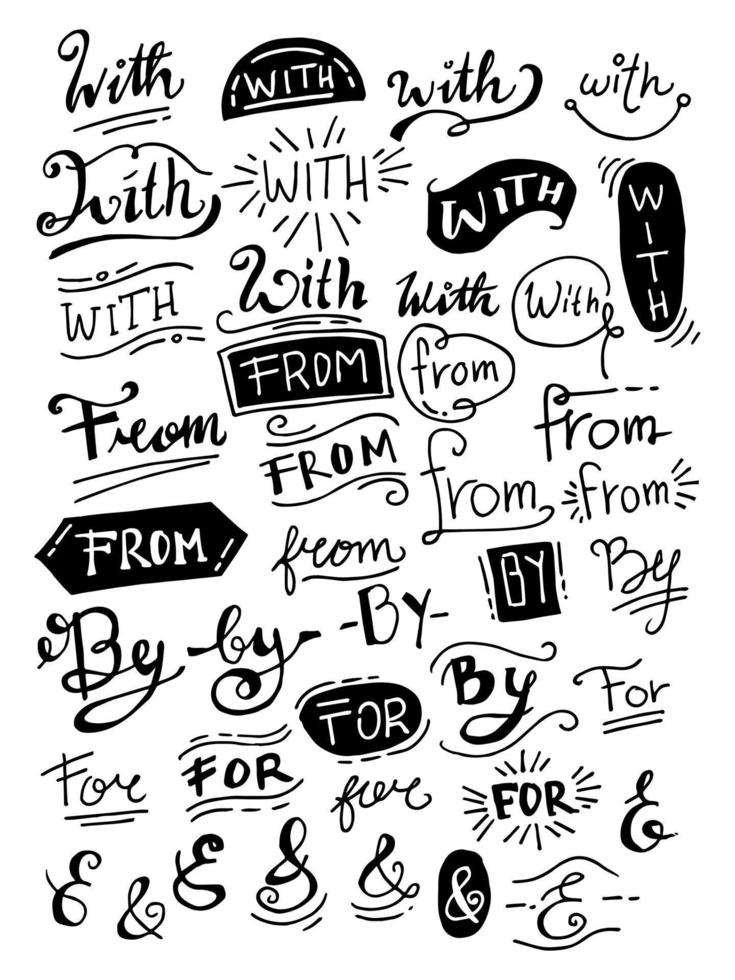 With WITH with with
With WITH WITH WITH
WITH With With With
FROM from
From FROM from from
from
FROM from BY By
By -by- -BY- By For
FOR
For FOR for FOR &
& & & & & & &